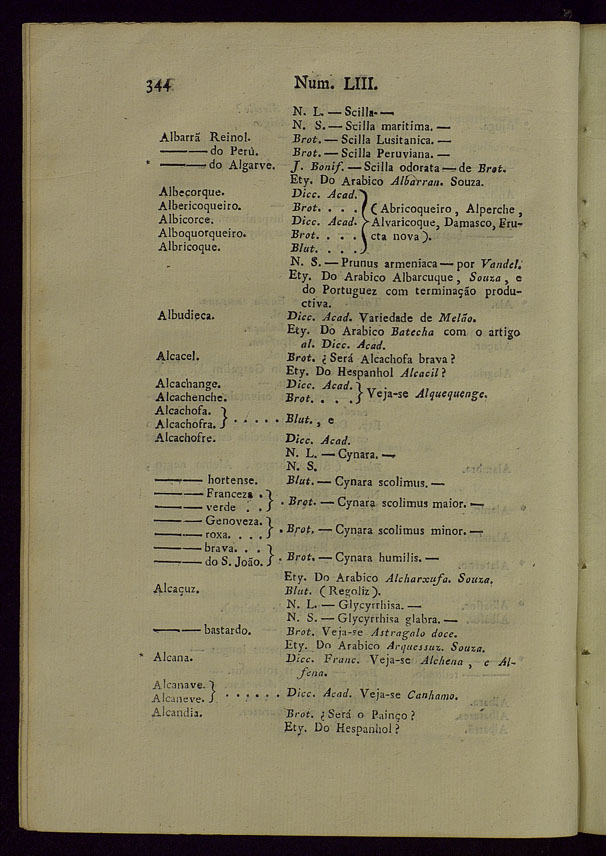 344 Num. LIII.
N. L. — Scilla. —
N. S. — Scilla maritima. —
Albarrã Reinol. Brot. — Scilla Lusitanica. —
——— do Perú. Brot. — Scilla Peruviana. —
* ——— do Algarve. J. Bonif. — Scilla odorata — de Brot.
Ety. Do Arabico Albarran. Souza.
Albeçorque. Dicc. Acad.
Albericoqueiro. Brot. . . . ( Abricoqueiro, Alperche,
Albicorce. Dicc. Acad. Alvaricoque, Damasco, Fru-
Alboquorqueiro. Brot. . . . cta nova ).
Albricoque. Blut. . . .
N. S. — Prunus armeniaca — por Vandel.
Ety. Do Arabico Albarcuque, Souza, e
do Portuguez com terminação produ-
ctiva.
Albudieca. Dicc. Acad. Variedade de Melão.
Ety. Do Arabico Batecha com o artigo
al. Dicc. Acad.
Alcacel. Brot. ¿ Será Alcachofa brava ?
Ety. Do Hespanhol Alcacil ?
Alcachange. Dicc. Acad. } Veja-se Alquequenge.
Alcachenche. Brot. . . .
Alcachofa. } . . . . . Blut., e
Alcachofra.
Alcachofre. Dicc. Acad.
N. L. — Cynara. —
N. S.
——— hortense. Blut. — Cynara scolimus. —
——— Franceza . } . Brot. — Cynara scolimus maior. —
——— verde . .
——— Genoveza. } . Brot. — Cynara scolimus minor. —
——— roxa. . . .
——— brava. . . } . Brot. — Cynara humilis. —
——— do S. João.
Ety. Do Arabico Alcharxufa. Souza.
Alcaçuz. Blut. ( Regoliz ).
N. L. — Glycyrrhisa. —
N. S. — Glycyrrhisa glabra. —
——— bastardo. Brot. Veja-se Astragalo doce.
Ety. Do Arabico Arquessuz. Souza.
* Alcana. Dicc. Franc. Veja-se Alchena, e Al-
fena.
Alcanave. } . . . . . . Dicc. Acad. Veja-se Canhamo.
Alcaneve.
Alcandia. Brot. ¿ Será o Painço ?
Ety. Do Hespanhol ?